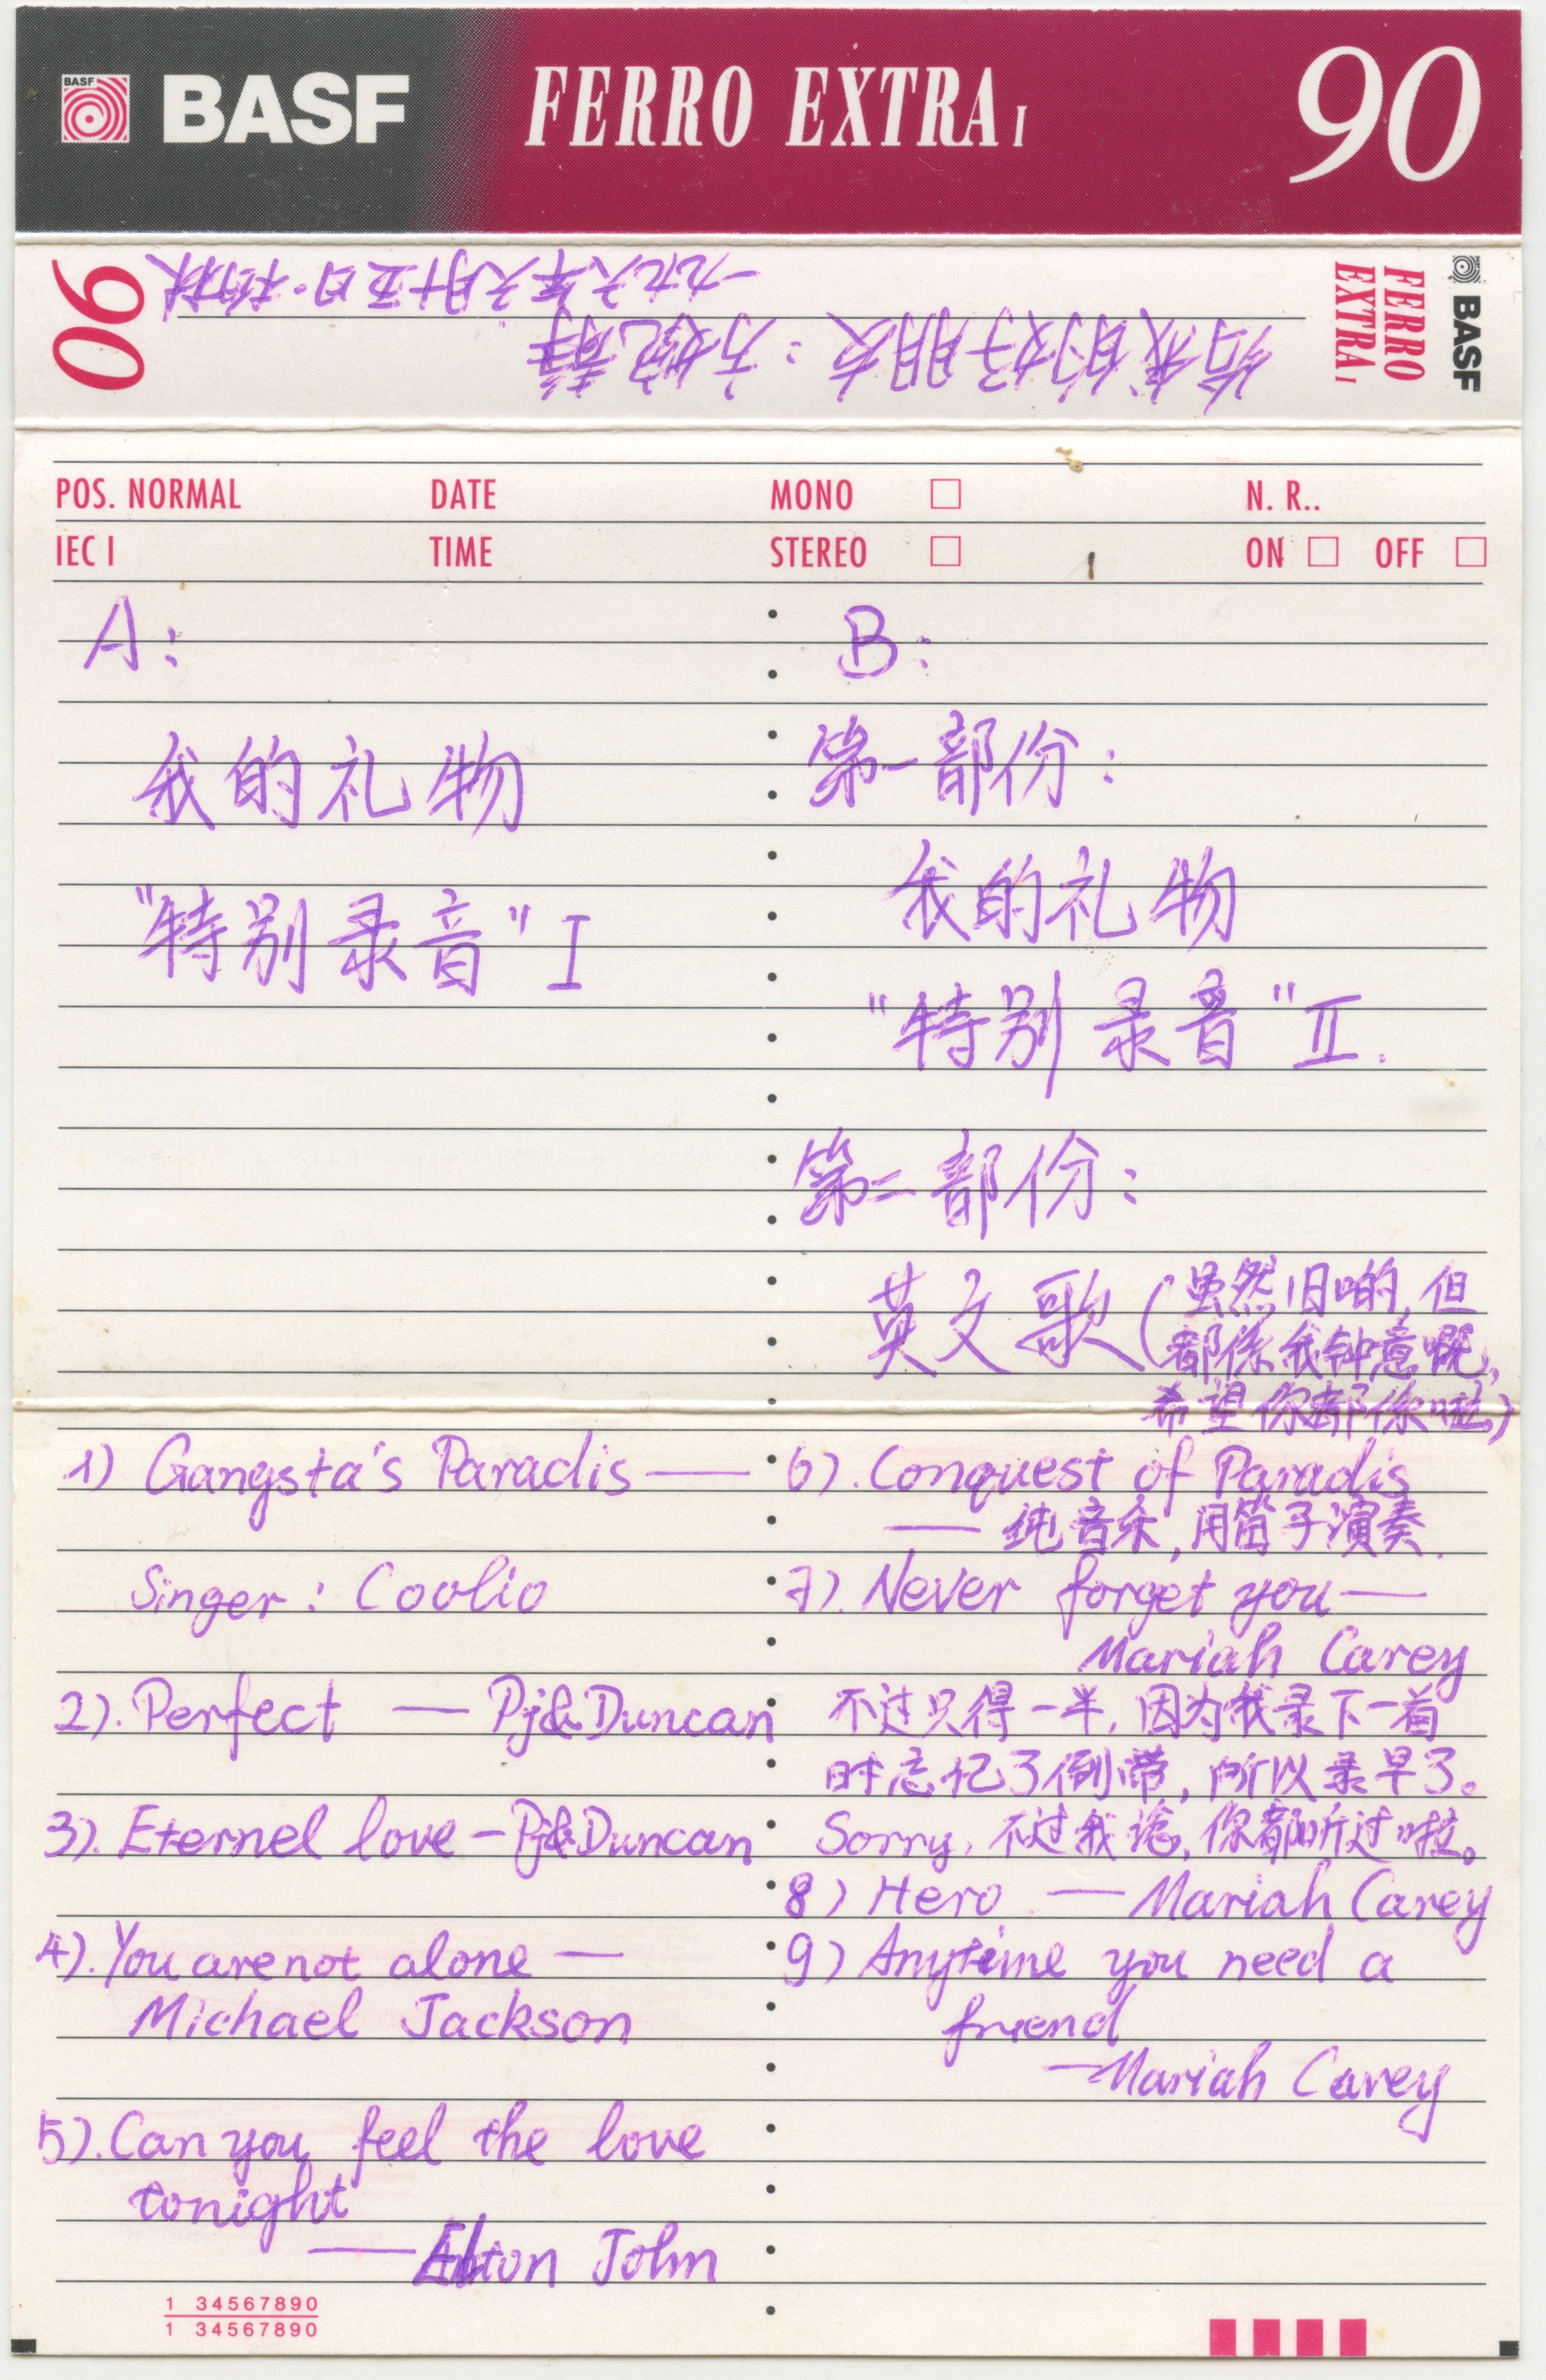 BASF
BASF FERRO EXTRA I 90
90 FERRO EXTRA I BASF
给我的好朋友:方婉
一九九六年六月十五日·
POS. NORMAL DATE MONO N. R..
IEC I TIME STEREO ON OFF
A:
我的礼物
"特别录音" I
B:
第一部份:
我的礼物
"特别录音" II.
第二部份:
英文歌(虽然旧啲,但
都係我钟意嘅,
希望你都係啦)
1) Gangsta's Paradis —
Singer: Coolio
2). Perfect — Pj&Duncan
3). Eternel love - Pj&Duncan
4). You are not alone —
Michael Jackson
5). Can you feel the love
tonight
— Elton John
6). Conquest of Paradis
— 纯音乐,用笛子演奏.
7). Never forget you —
Mariah Carey
不过只得一半,因为我录下一首
时忘记了倒带,所以录早了。
Sorry, 不过我谂,你都听过啦。
8) Hero — Mariah Carey
9) Anytime you need a
friend
— Mariah Carey
1 34567890
1 34567890